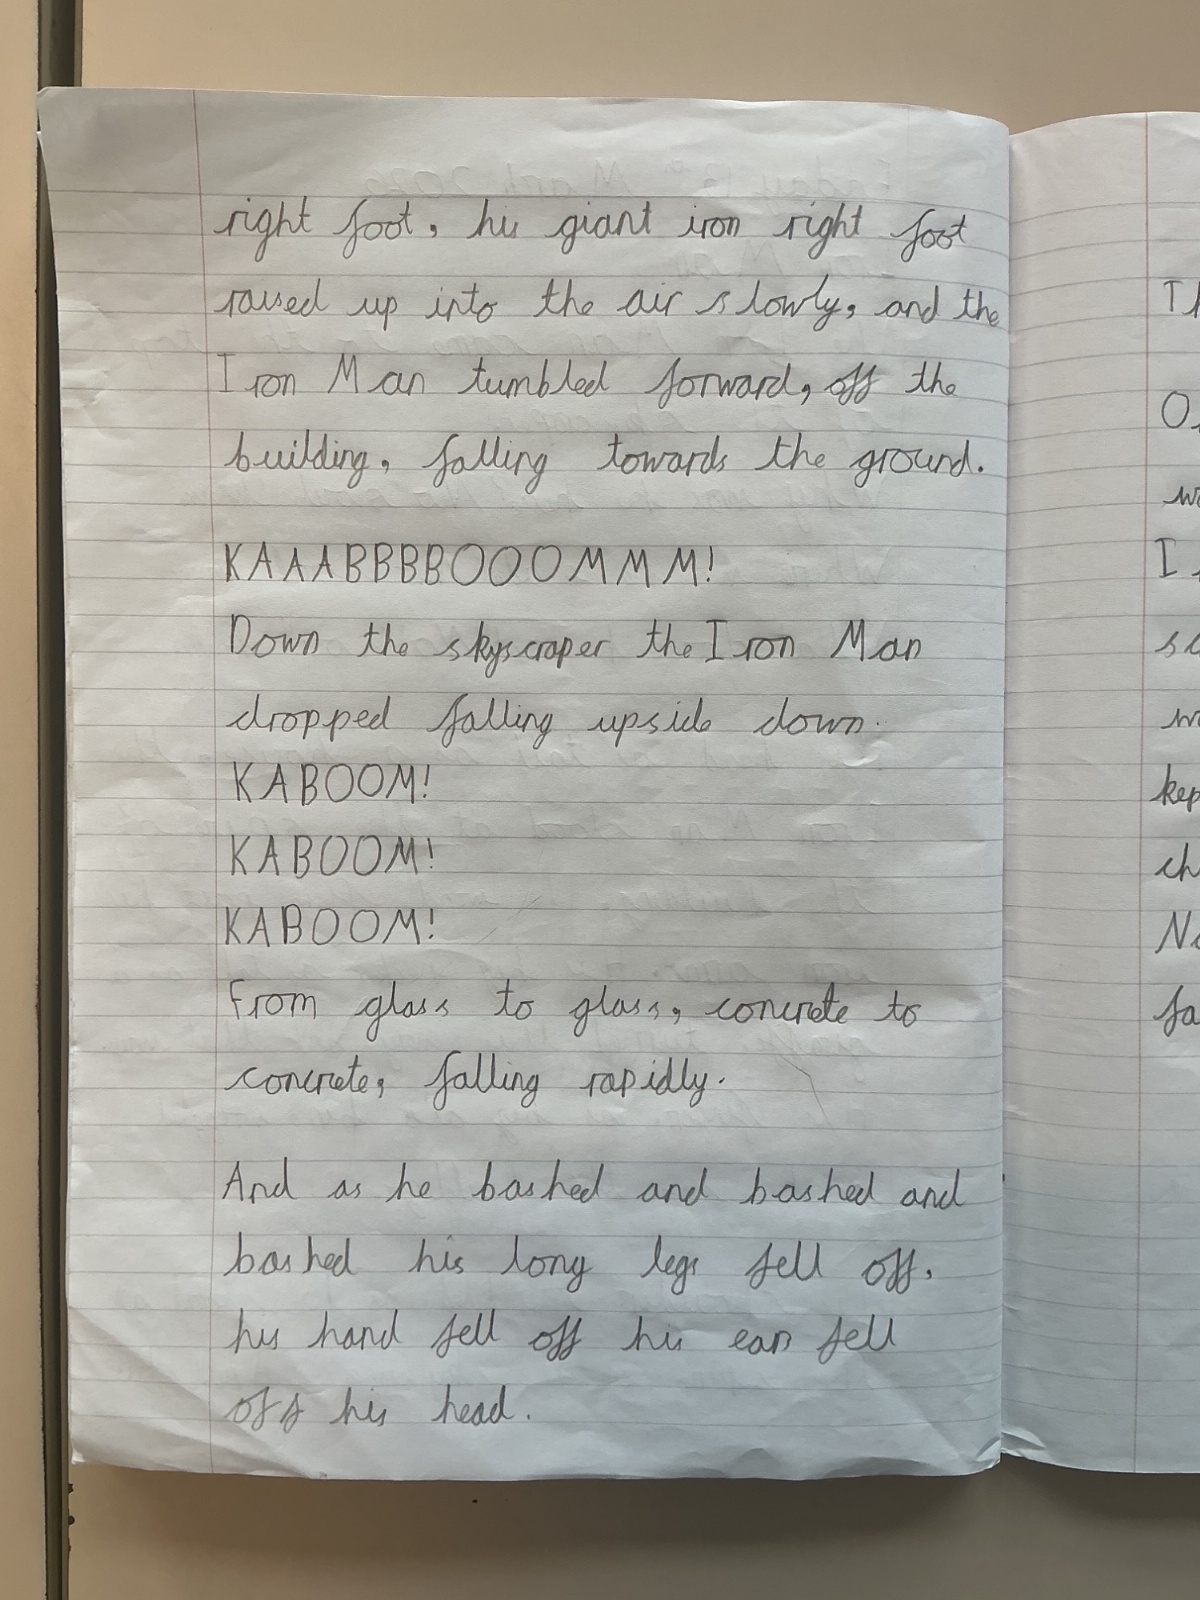 right foot, his giant iron right foot
raised up into the air slowly, and the
Iron Man tumbled forward, off the
building, falling towards the ground.
KAAABBBBOOOMMM!
Down the skyscraper the Iron Man
dropped falling upside down.
KABOOM!
KABOOM!
KABOOM!
From glass to glass, concrete to
concrete, falling rapidly.
And as he bashed and bashed and
bashed his long legs fell off,
his hand fell off his ear fell
off his head.